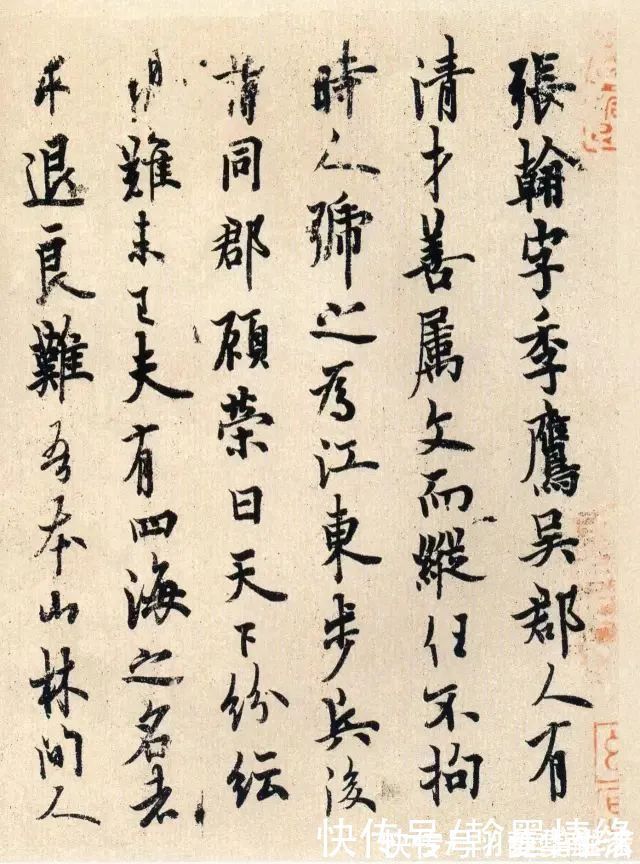 張翰字季鷹吳郡人有
清才善屬文而縱任不拘
時人號之為江東步兵後
謂同郡顧榮曰天下紛紜
難未已夫有四海之名者
求退良難吾本山林間人
快传号/翰墨情缘